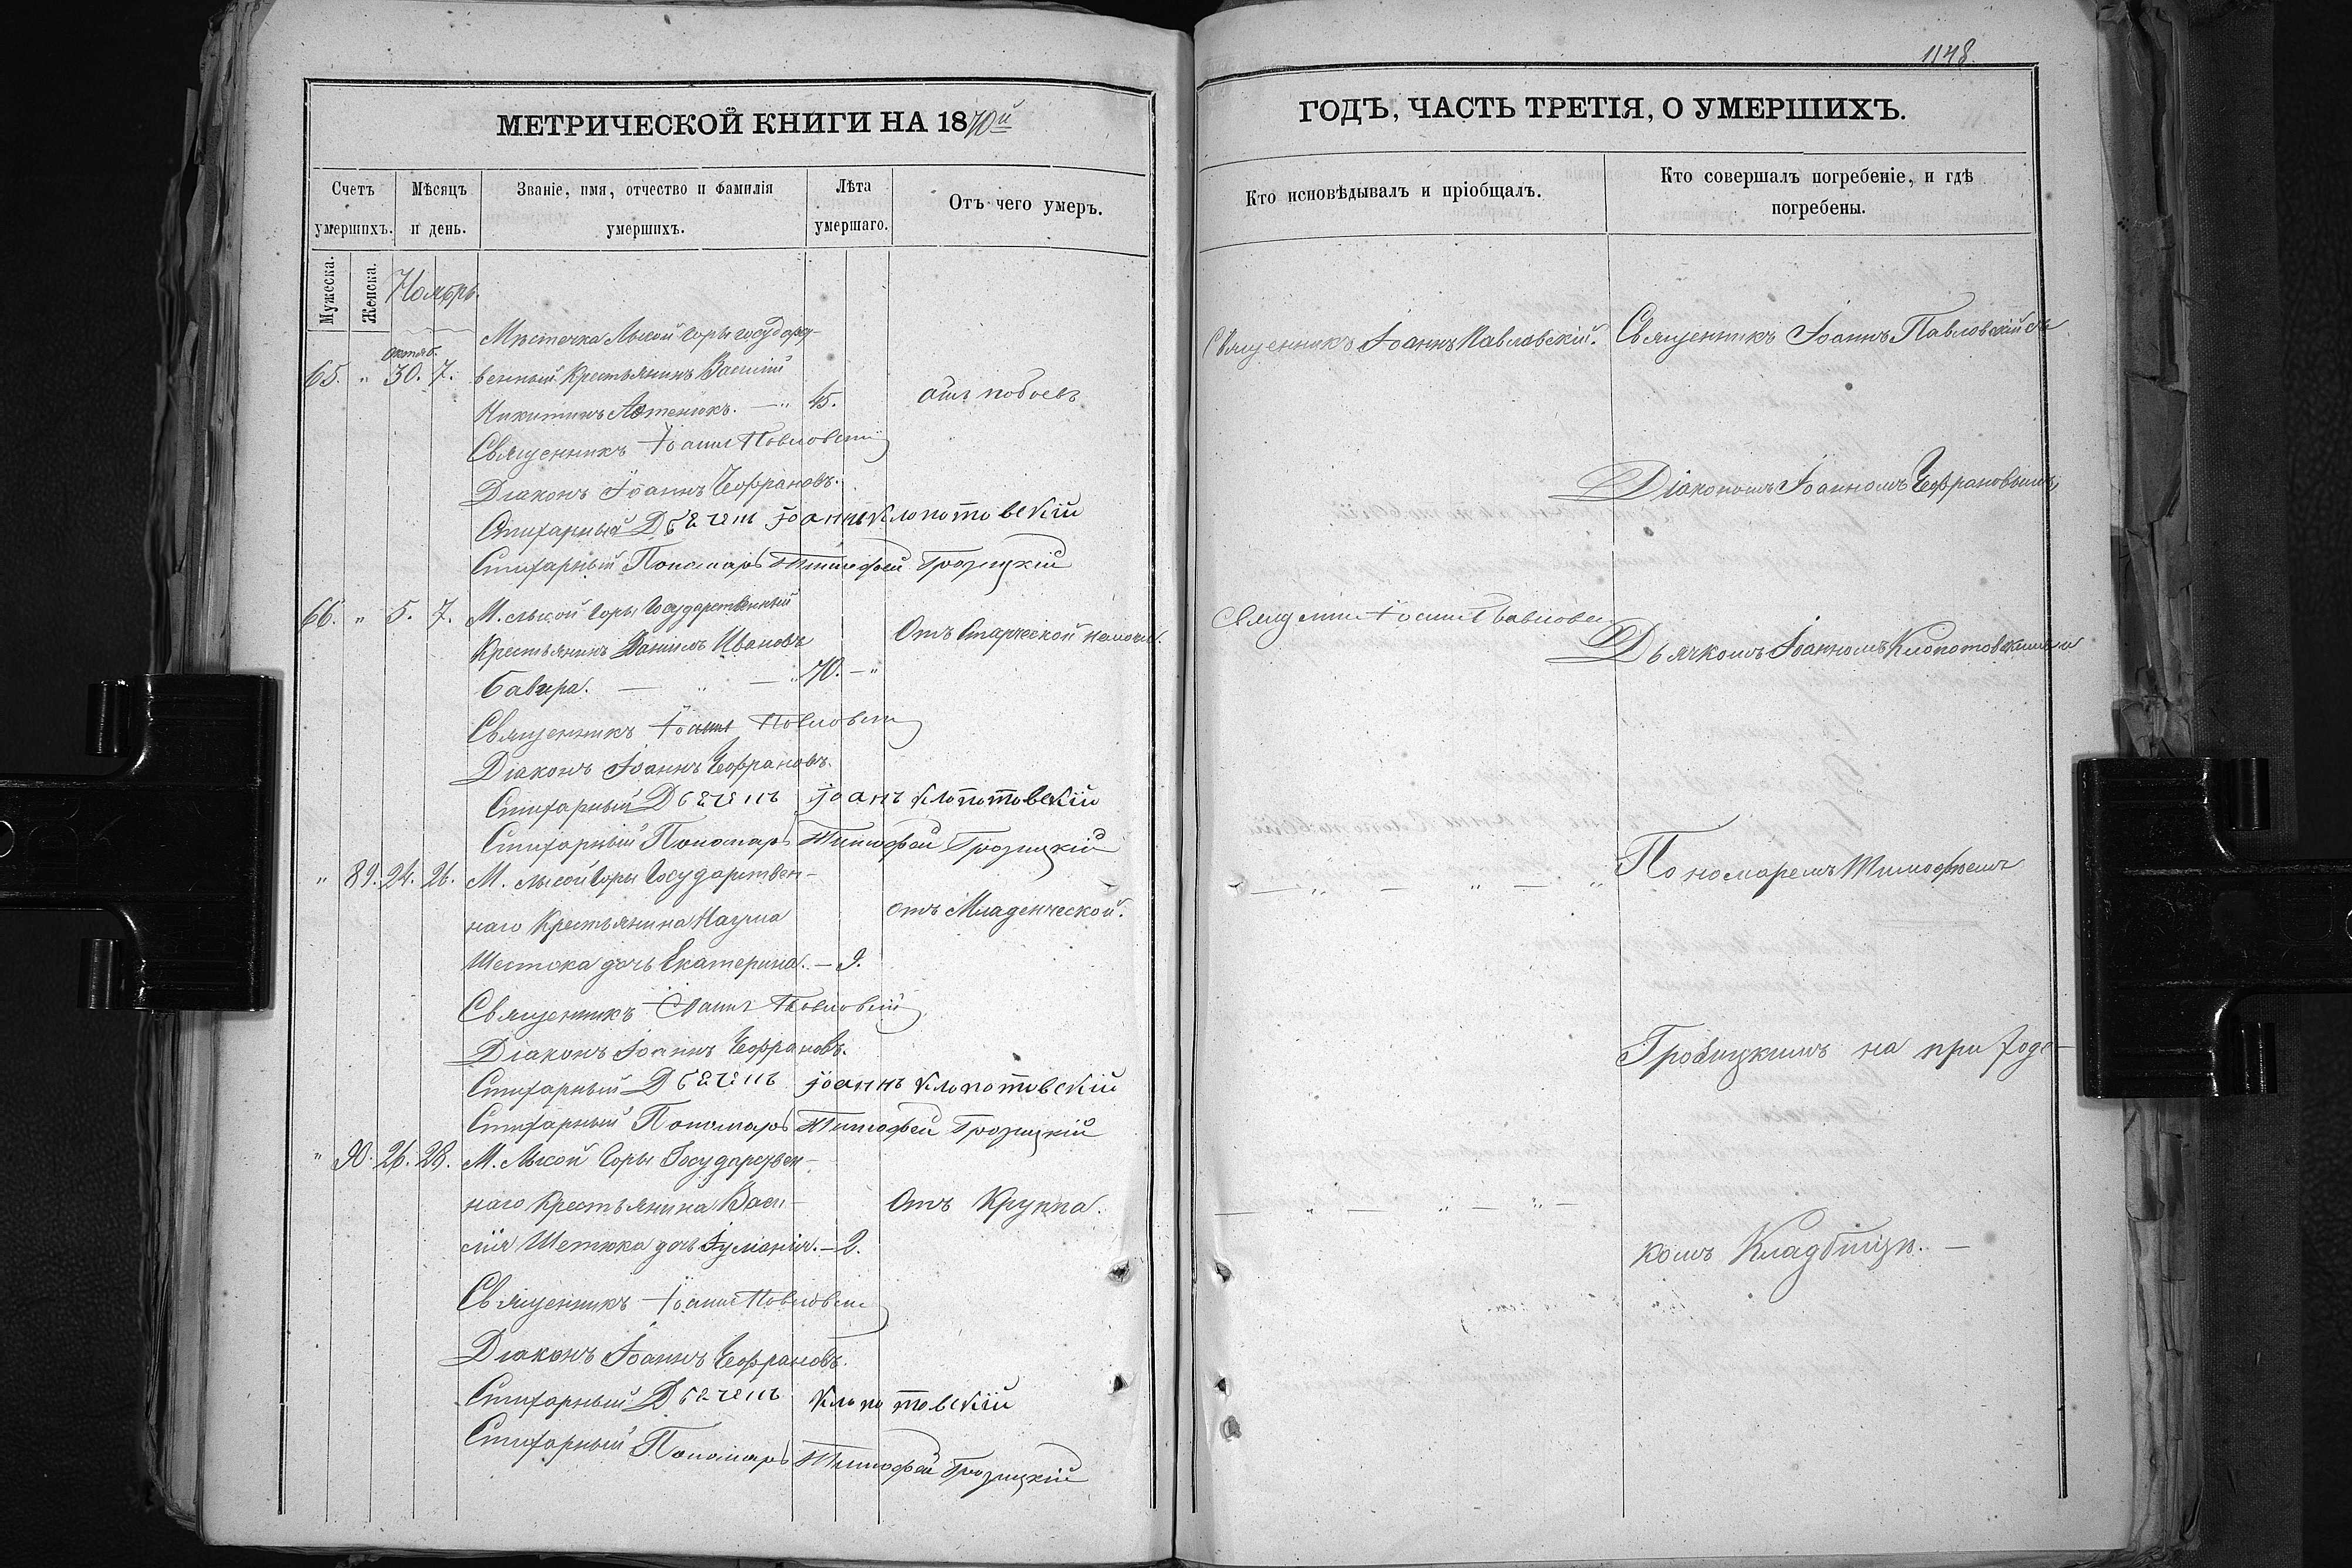 1148.
МЕТРИЧЕСКОЙ КНИГИ НА 1870й
Счетъ умершихъ.
Мѣсяцъ и день.
Званіе, имя, отчество и фамилія умершихъ.
Лѣта умершаго.
Отъ чего умеръ.
Мужеска.
Женска.
Ноябрь.
Мѣстечка Лысой Горы государст-
Октяб.
65. " 30. 7. венный Крестьянинъ Василій
Никитинъ — " 45. отъ побоевъ
Священникъ Іоаннъ Павловскій
Діаконъ Іоаннъ Чефрановъ.
Стихарный Дьячекъ Іоаннъ Клопотовскій
Стихарный Пономарь Тимофей Грозицкій
66. " 5. 7. М. Лысой Горы Государственный
Крестьянинъ Даніилъ Ивановъ Отъ Старческой немочи.
— " — " 70. — "
Священникъ Іоаннъ Павловскій
Діаконъ Іоаннъ Чефрановъ.
Стихарный Дьячекъ Іоаннъ Клопотовскій
Стихарный Пономарь Тимофей Грозицкій
" 89. 24. 26. М. Лысой Горы Государствен-
наго Крестьянина Наума отъ Младенческой.
Шестока дочь Екатерина. — 9.
Священникъ Іоаннъ Павловскій
Діаконъ Іоаннъ Чефрановъ.
Стихарный Дьячекъ Іоаннъ Клопотовскій
Стихарный Пономарь Тимофей Грозицкій
" 90. 26. 28. М. Лысой Горы Государствен-
наго Крестьянина Васи- Отъ Круппа.
лія дочь Іуліанія. — 2.
Священникъ Іоаннъ Павловскій
Діаконъ Іоаннъ Чефрановъ.
Стихарный Дьячекъ Клопотовскій
Стихарный Пономарь Тимофей Грозицкій
ГОДЪ, ЧАСТЬ ТРЕТІЯ, О УМЕРШИХЪ.
Кто исповѣдывалъ и пріобщалъ.
Кто совершалъ погребеніе, и гдѣ погребены.
Священникъ Іоаннъ Павловскій. Священникъ Іоаннъ Павловскій съ
Діакономъ Іоанномъ Чефрановымъ,
Священникъ Іоаннъ Павловскій
Дьячкомъ Іоанномъ Клопотовскимъ и
— " — " — " Пономаремъ Тимофеемъ
Грозицкимъ на приходс-
— " — " — " —
комъ Кладбищѣ. —